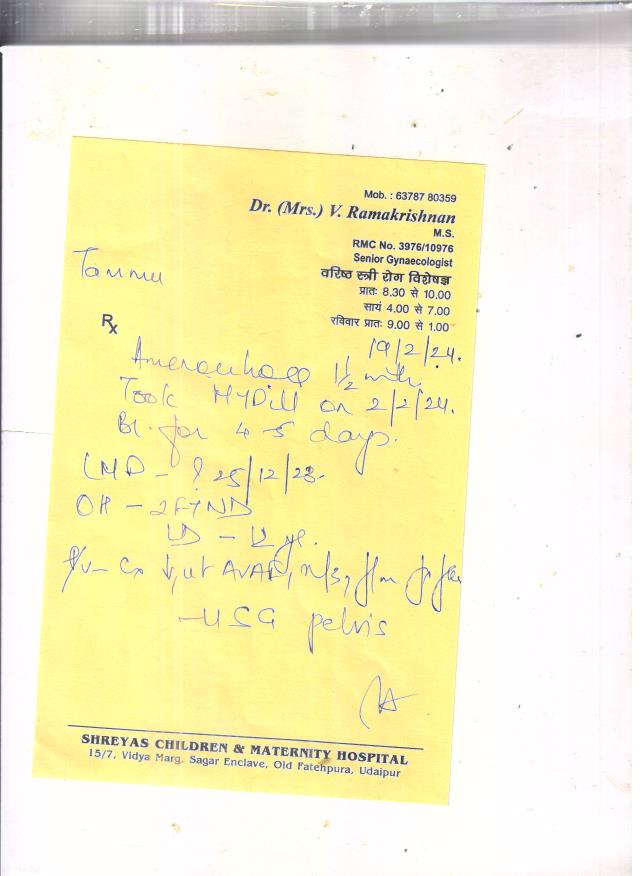 Mob. : 63787 80359
Dr. (Mrs.) V. Ramakrishnan
M.S.
RMC No. 3976/10976
Senior Gynaecologist
वरिष्ठ स्त्री रोग विशेषज्ञ
प्रातः 8.30 से 10.00
सायं 4.00 से 7.00
रविवार प्रातः 9.00 से 1.00
Tannu
Rx
19/2/24.
1 1/2 mth.
Took MTPill on 2/2/24.
Bl. for 4-5 days.
LMP - ? 25/12/23.
OH - 2FTND
LD - 12 yr.
P/v - Cx ↓, ut AVAF, n/s,
- USG pelvis
SHREYAS CHILDREN & MATERNITY HOSPITAL
15/7, Vidya Marg. Sagar Enclave, Old Fatehpura, Udaipur